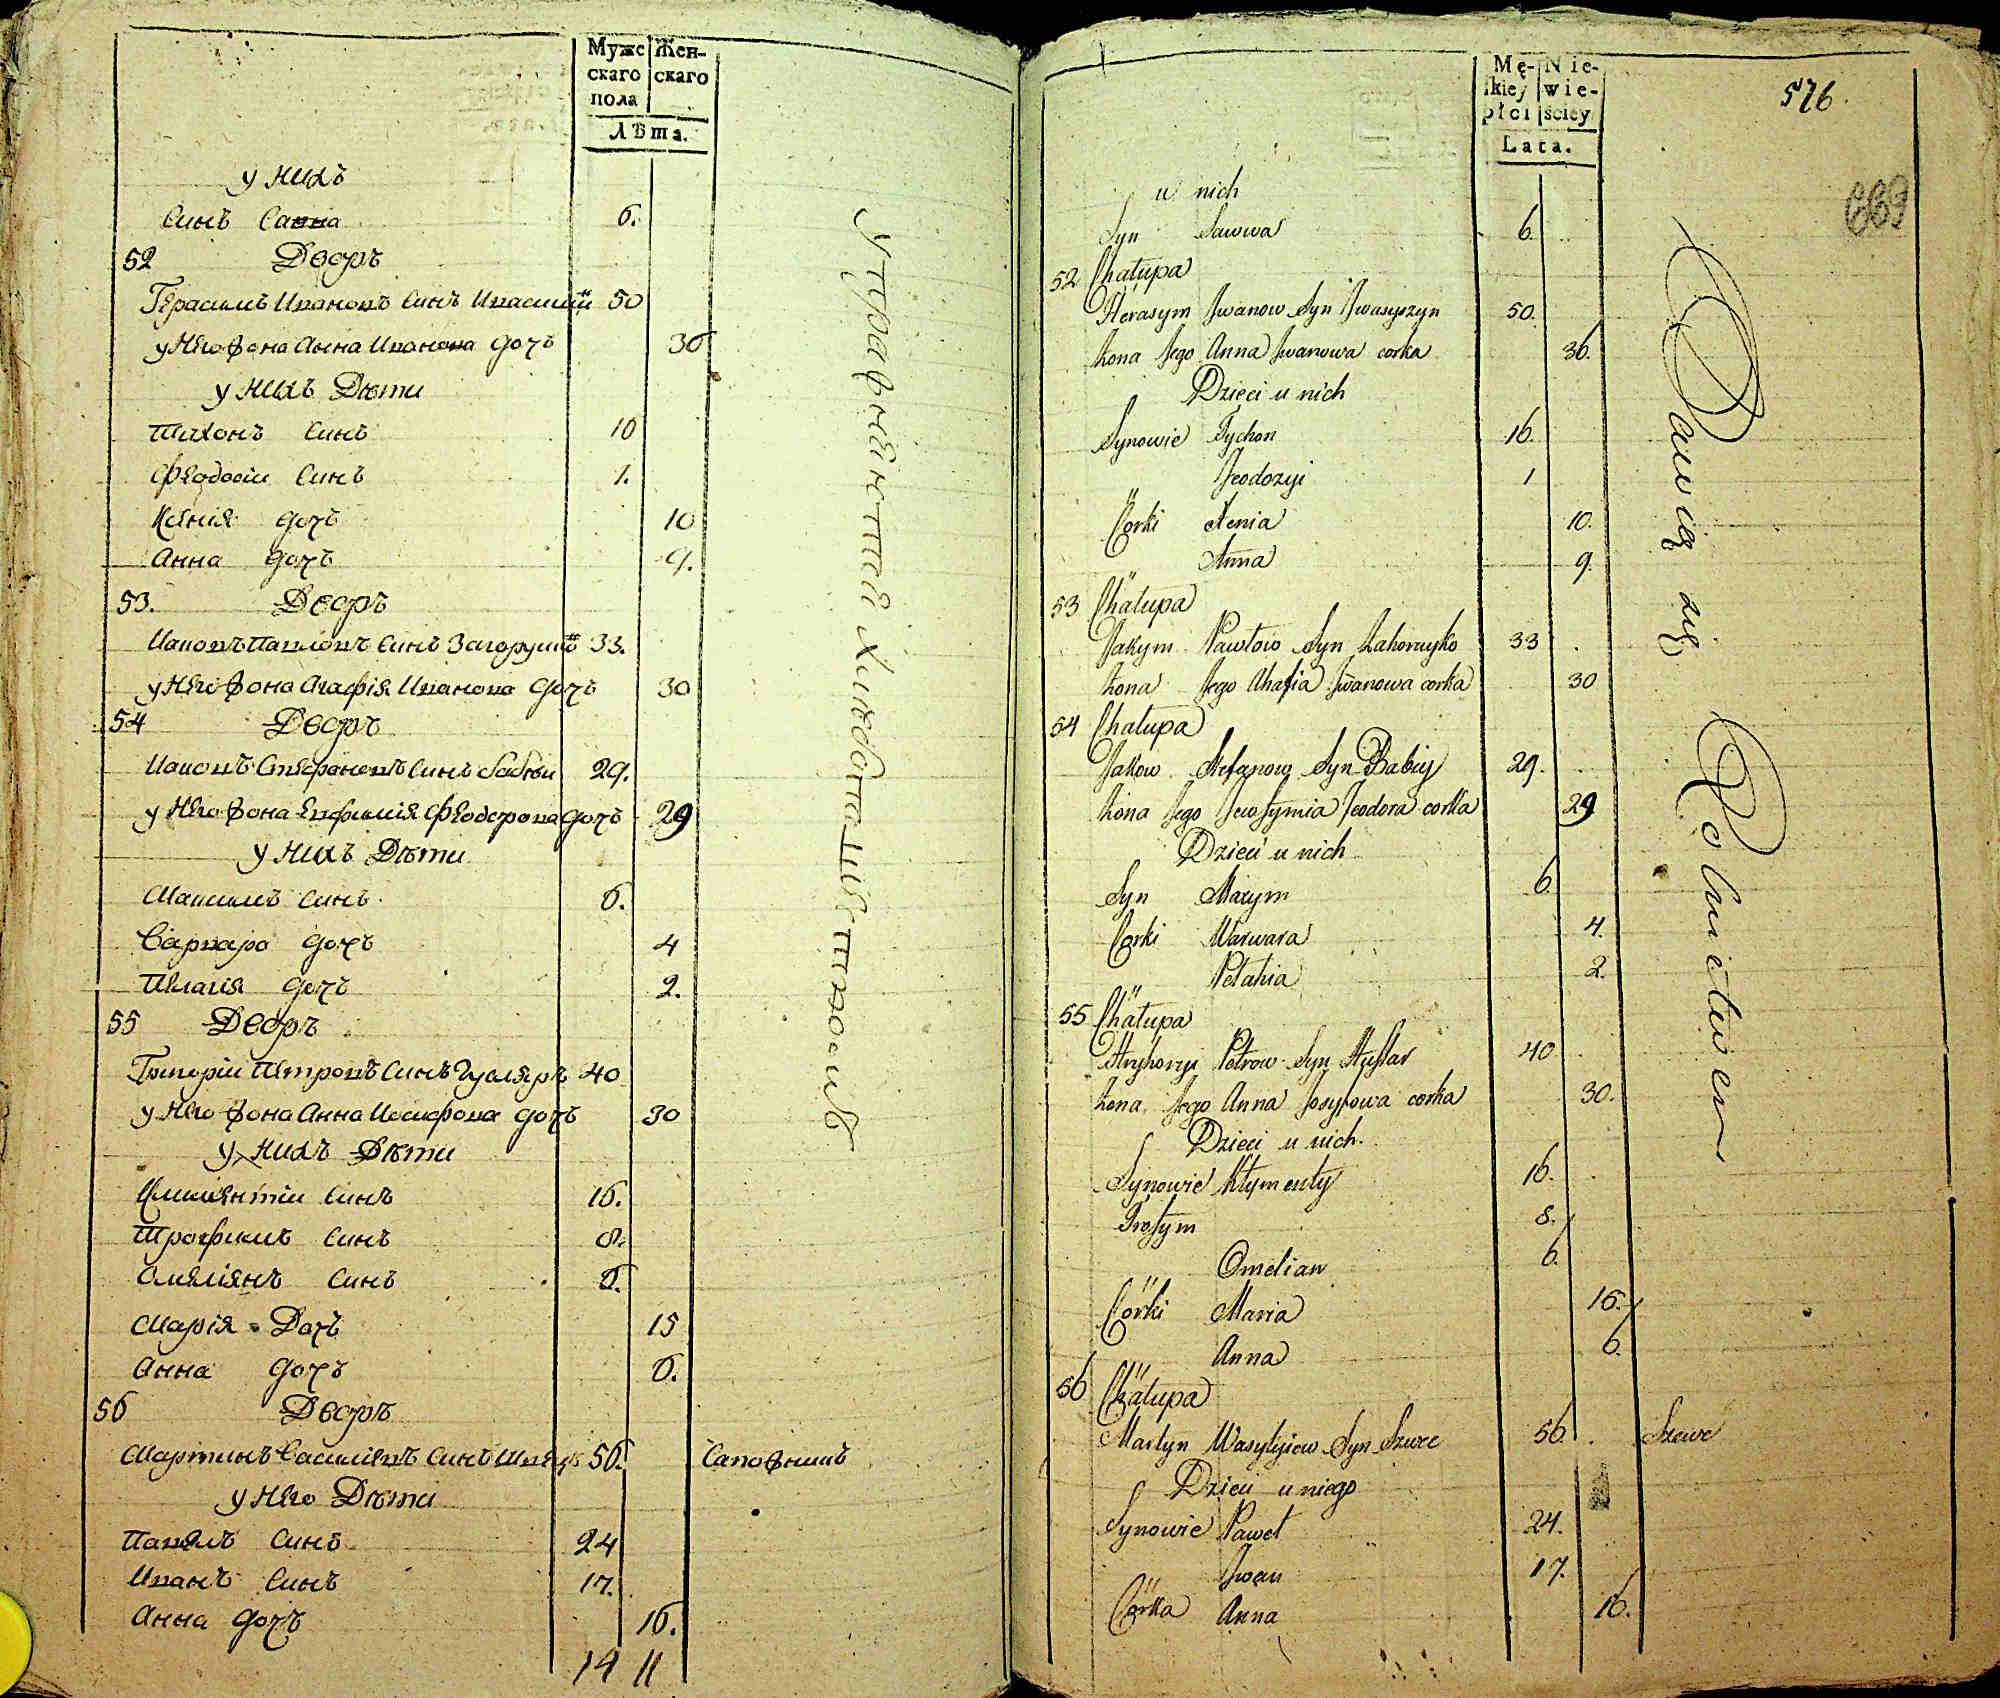 Мужескаго пола
Женскаго
Лѣта.
у нихъ
Синъ Савва 6.
52 Дворъ
Герасимъ Ивановъ Синъ 50
у Него Жона Анна Иванова Дочъ 36
у нихъ Дѣти
Тихонъ Синъ 16
Феодосіи Синъ 1.
Ксенія Дочъ 10
Анна Дочъ 9.
53. Дворъ
Павловъ Синъ Загоруйкѡ 33.
у Него Жона Агафія Иванова Дочъ 30
54 Дворъ
Яковъ Стефановъ Синъ Бабѣи 29.
у Него Жона Евфимія Феодорова Дочъ 29
у нихъ Дѣти
Максимъ Синъ. 6.
Варвара Дочъ 4
Пелагія Дочъ 2.
55 Дворъ
Григоріи Петровъ Синъ Гусляръ 40
у Него Жона Анна Иосифова Дочъ 30
у нихъ Дѣти
Климентіи Синъ 16.
Трофимъ Синъ 8.
Омеліянъ Синъ 6.
Марія Дочъ 15
Анна Дочъ 6.
56 Дворъ
Мартинъ Василіевъ Синъ Швецъ 56. Сапожникъ
у Него Дѣти
Павелъ Синъ 24
Иванъ Синъ 17.
Анна Дочъ 16.
14 11
Упражняются Хлебопашествомъ
576
Męskiey płci
Niewieściey
Lata.
u nich
Syn Sawwa 6.
52 Chałupa
Herasym Iwanow Syn Iwasyszyn 50.
Żona Jego Anna Iwanowa corka 36.
Dzieci u nich
Synowie Tychon 16.
Feodozyi 1
Córki Xenia 10.
Anna 9.
53 Chałupa
Jakym Pawłow Syn Zahoruyko 33
Żona Jego Ahafia Iwanowa corka 30
54 Chałupa
Jakow Stefanow Syn Babiy 29.
Żona Jego Jewfymia Feodora corka 29
Dzieci u nich
Syn Maxym 6.
Corki Warwara 4.
Pelahia 2.
55 Chałupa
Hryhoryi Petrow Syn Huslar 40
Żona Jego Anna Josyfowa corka 30.
Dzieci u nich.
Synowie Kłymenty 16.
Trofym 8.
Omelian 6.
Córki Maria 16.
Anna 6.
56 Chałupa
Martyn Wasylyiew Syn Szwec 56. Szewc
Dzieci u niego
Synowie Paweł 24.
Iwan 17.
Córka Anna 16.
Bawią się Rolnictwem